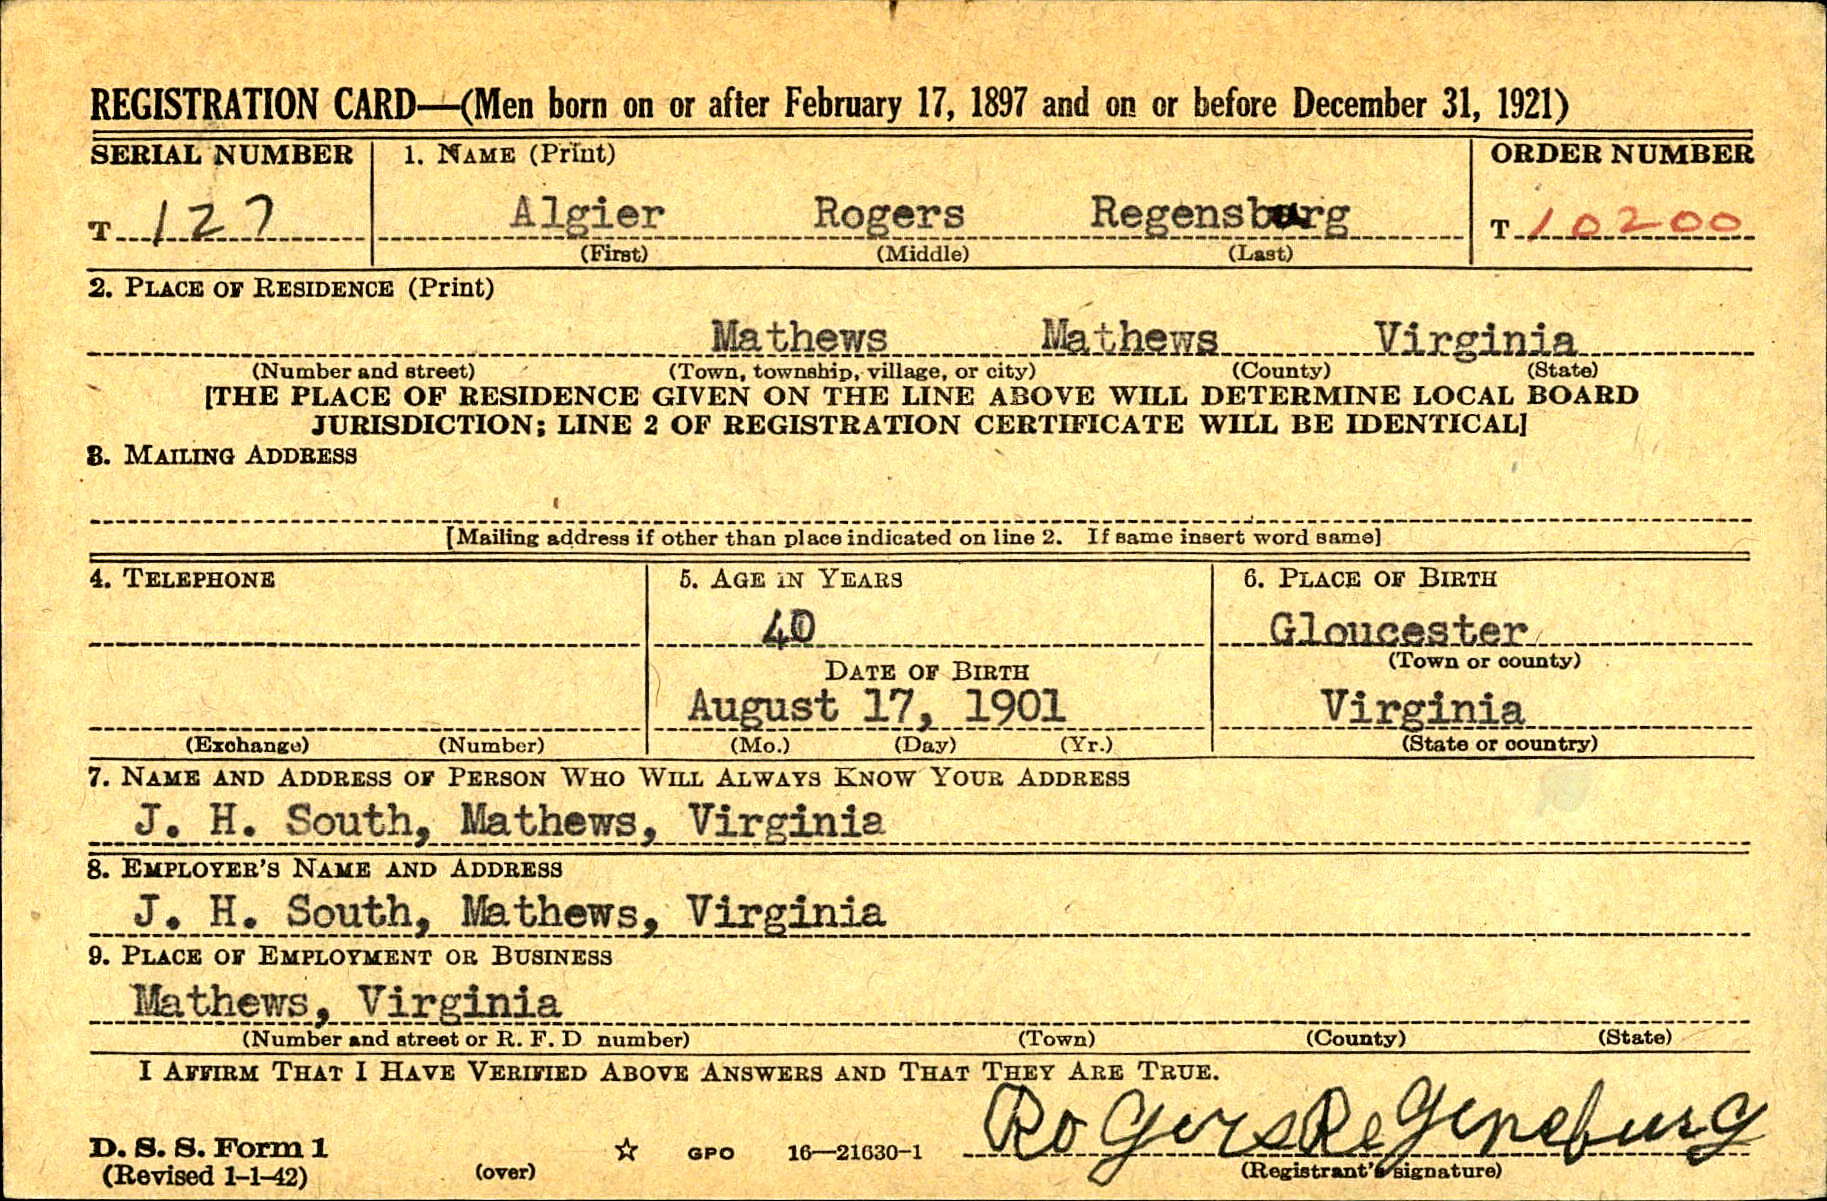 REGISTRATION CARD—(Men born on or after February 17, 1897 and on or before December 31, 1921)
SERIAL NUMBER 1. NAME (Print) ORDER NUMBER
T 127 Algier Rogers Regensburg T 10200
(First) (Middle) (Last)
2. PLACE OF RESIDENCE (Print)
Mathews Mathews Virginia
(Number and street) (Town, township, village, or city) (County) (State)
[THE PLACE OF RESIDENCE GIVEN ON THE LINE ABOVE WILL DETERMINE LOCAL BOARD
JURISDICTION; LINE 2 OF REGISTRATION CERTIFICATE WILL BE IDENTICAL]
3. MAILING ADDRESS
[Mailing address if other than place indicated on line 2. If same insert word same]
4. TELEPHONE 5. AGE IN YEARS 6. PLACE OF BIRTH
40 Gloucester
DATE OF BIRTH (Town or county)
August 17, 1901 Virginia
(Exchange) (Number) (Mo.) (Day) (Yr.) (State or country)
7. NAME AND ADDRESS OF PERSON WHO WILL ALWAYS KNOW YOUR ADDRESS
J. H. South, Mathews, Virginia
8. EMPLOYER'S NAME AND ADDRESS
J. H. South, Mathews, Virginia
9. PLACE OF EMPLOYMENT OR BUSINESS
Mathews, Virginia
(Number and street or R. F. D number) (Town) (County) (State)
I AFFIRM THAT I HAVE VERIFIED ABOVE ANSWERS AND THAT THEY ARE TRUE.
D. S. S. Form 1 RoGersReGeneburg
(Revised 1-1-42) (over) ☆ GPO 16—21630-1 (Registrant's signature)